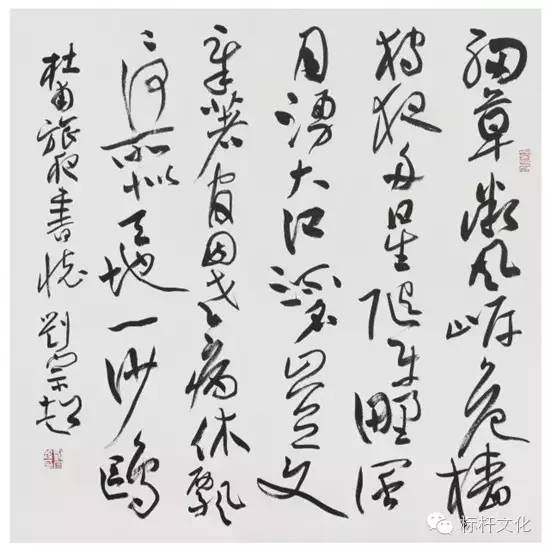 細草微风岸危檣
独夜舟星随平野阔
月湧大江流名岂文
章著官因老病休飘
々何所似天地一沙鷗
杜甫旅夜書懷 劉宗超
标杆文化